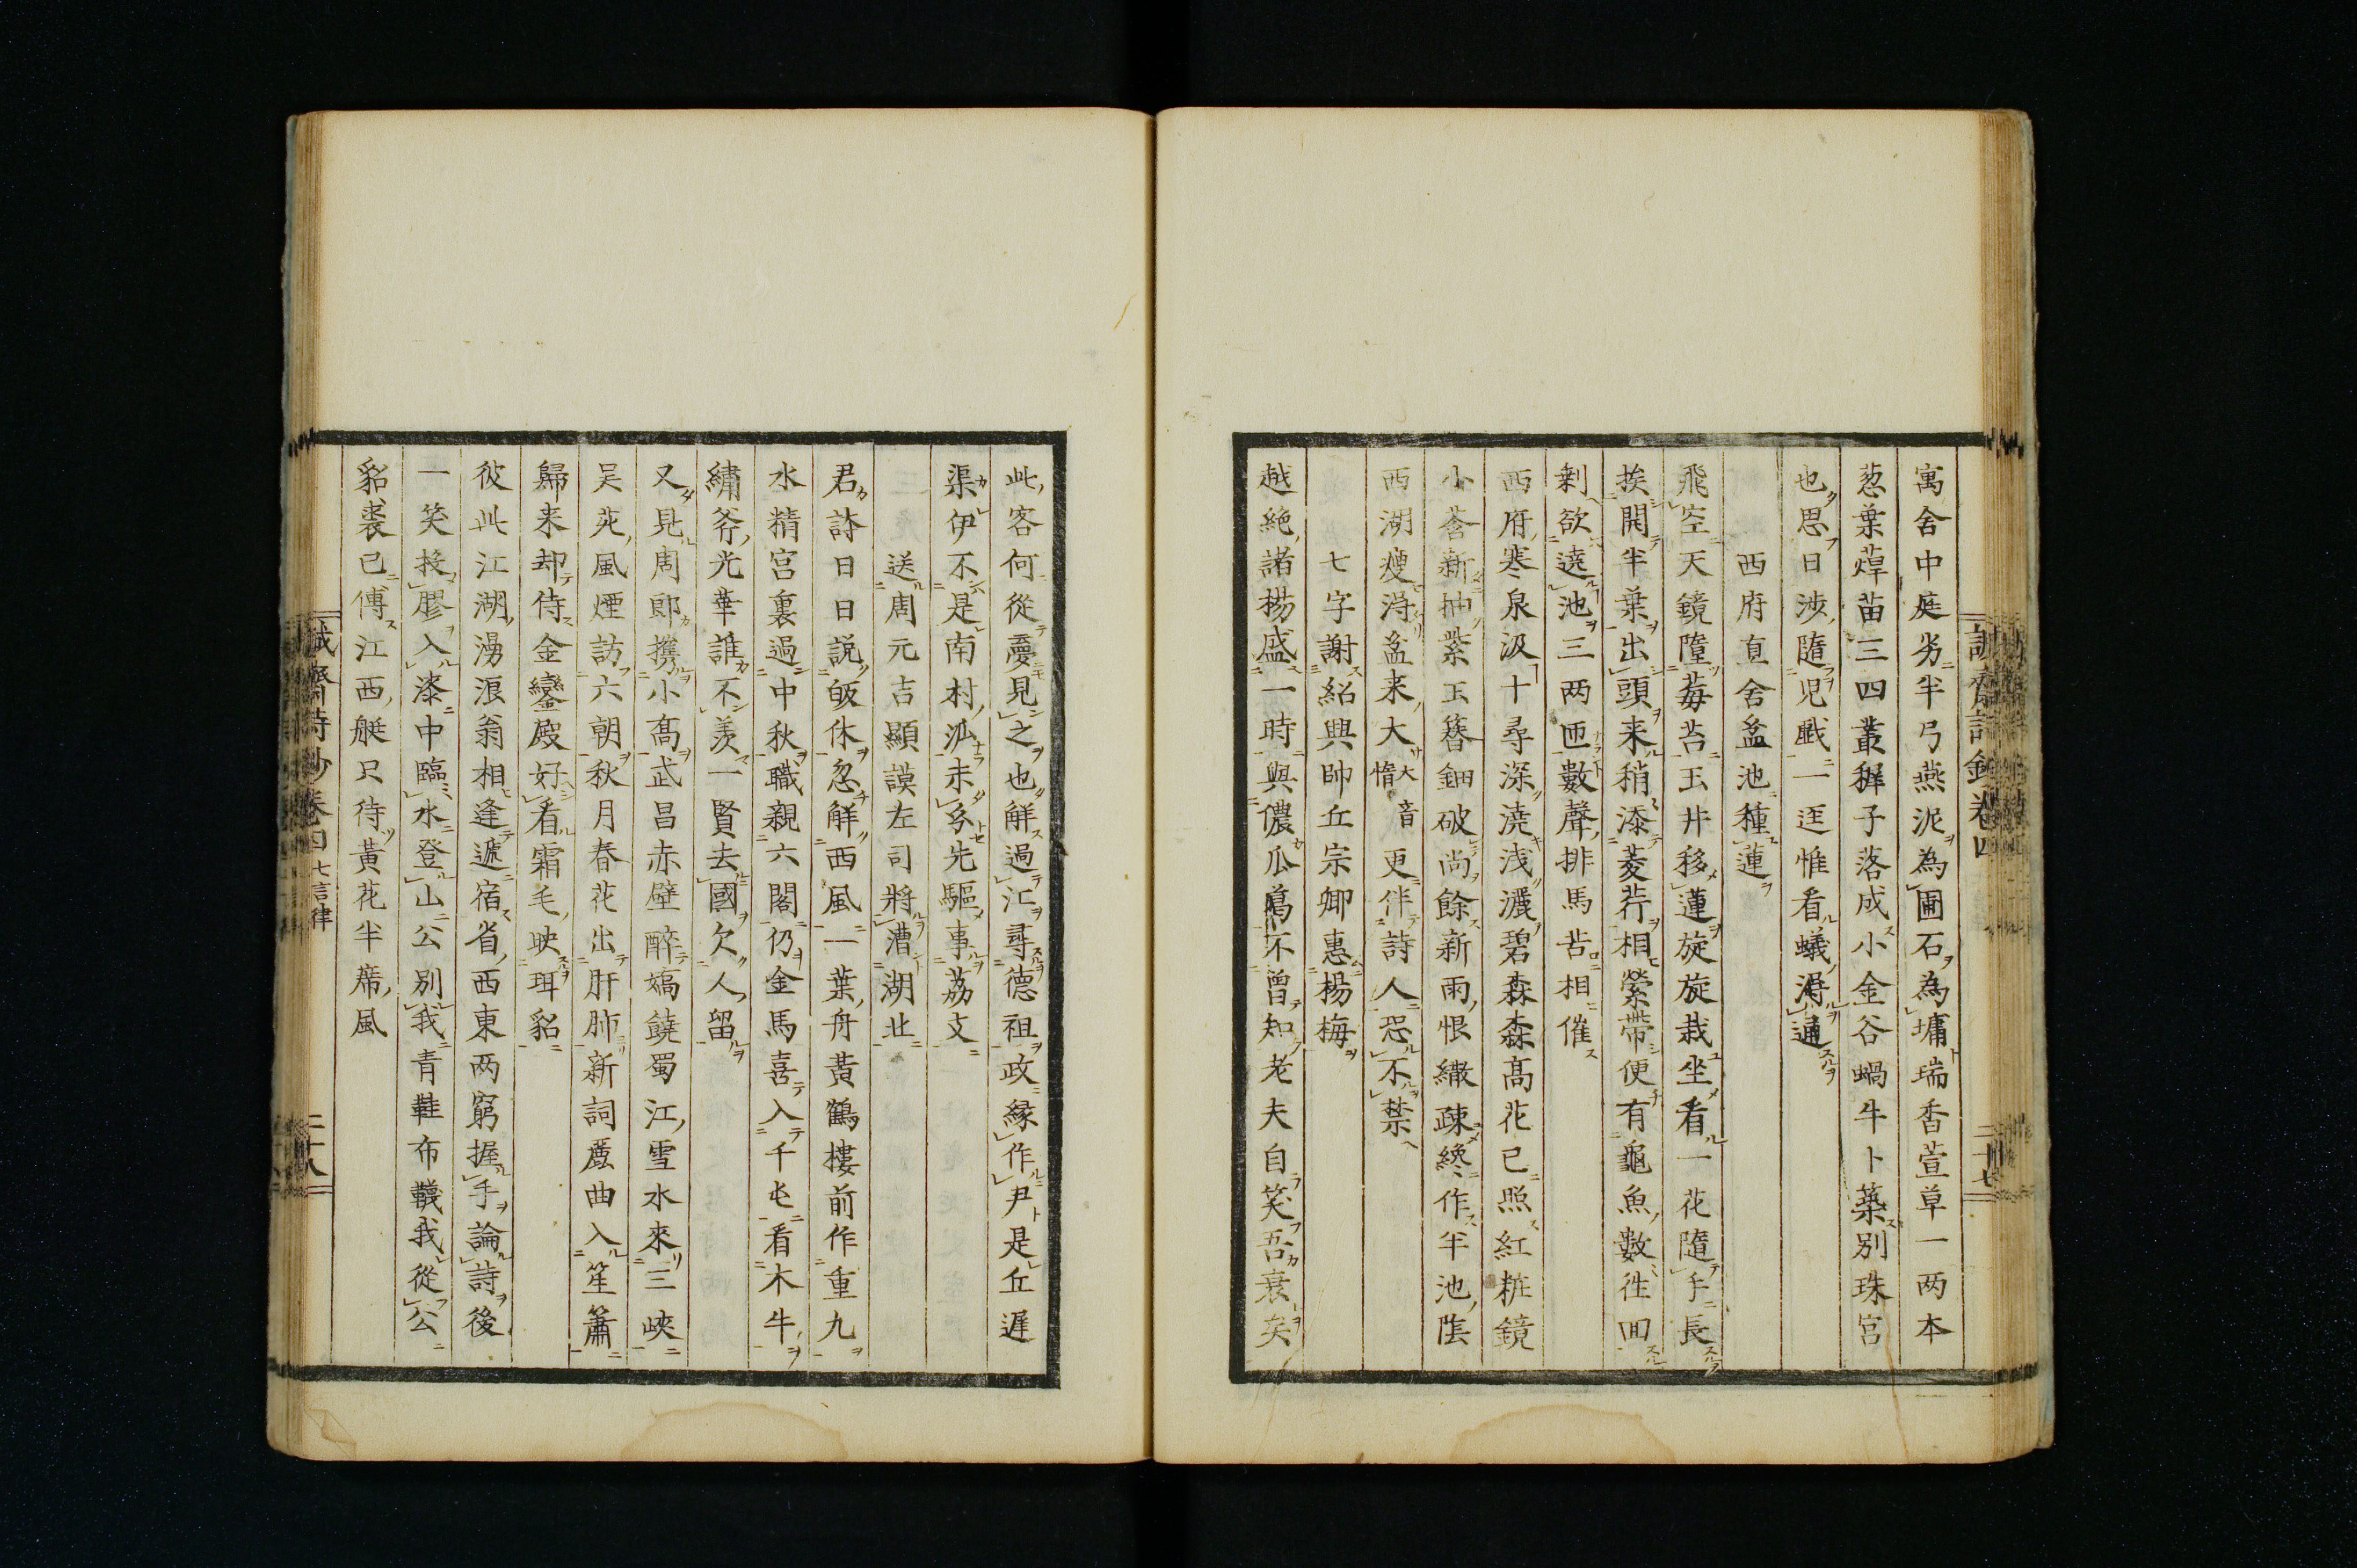 誠齋詩鈔卷四
二十七
寓舍中庭劣半弓燕泥為圃石為墉瑞香萱草一两本
葱葉蓴苗三四叢穉子落成小金谷蝸牛卜築別珠宮
也思日涉隨児戲一逕惟看蟻得通
西府直舍盆池種蓮
飛空天鏡墮莓苔玉井移蓮旋旋栽坐看一花隨手長
挨開半葉出頭来稍添菱荇相縈帶便有龜魚數徃囬
剰欲遶池三两匝數聲排馬苦相催
西府寒泉汲十尋深澆浅灑碧森森髙花已照紅粧鏡
小荅新抽紫玉簪鈿破尚餘新雨恨繖疎纔作半池陰
西湖瘦得盆来大 大音惰 更伴詩人恐不禁
七字謝紹興帥丘宗卿惠楊梅
越絶諸楊盛一時與儂瓜葛不曾知老夫自笑吾衰矣
此客何從夢見之也解過江尋德祖政縁作尹是丘遲
渠伊不是南村派未分先驅事荔支
送周元吉顯謨左司將漕湖北
君詩日日説皈休忽解西風一葉舟黃鶴樓前作重九
水精宮裏過中秋職親六閣仍金馬喜入千屯看木牛
繡斧光華誰不羡一賢去國欠人留
又見周郎攜小髙武昌赤壁醉嬌饒蜀江雪水來三峽
吴苑風煙訪六朝秋月春花出肝肺新詞麗曲入笙簫
歸来却侍金鑾殿好看霜毛映珥貂
彼此江湖漫浪翁相逢遞宿省西東两窮握手論詩後
一笑投膠入漆中臨水登山公別我青鞋布韈我從公
貂裘已傳江西艇只待黃花半席風
誠齋詩鈔卷四 七言律
二十八